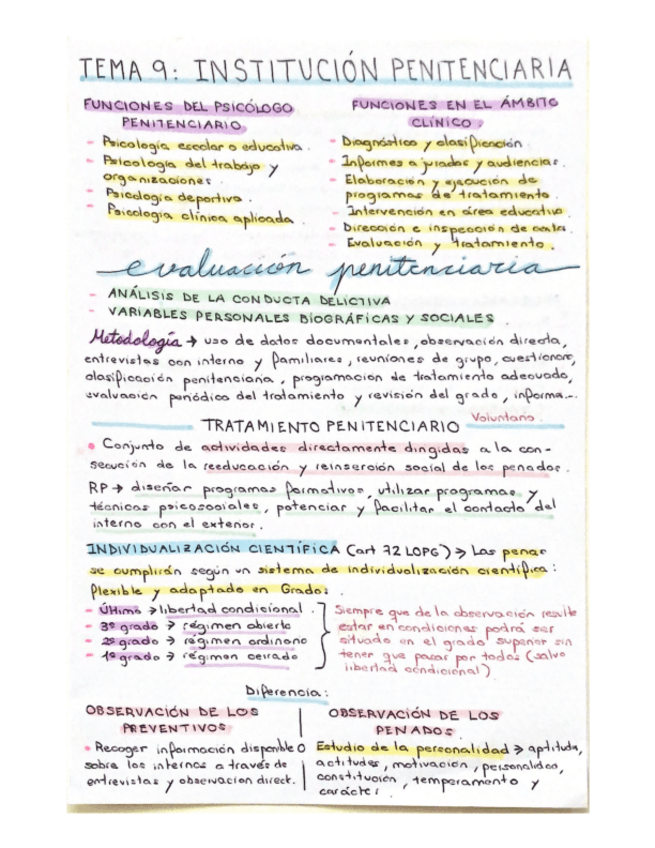 TEMA 9: INSTITUCIÓN PENITENCIARIA
FUNCIONES DEL PSICÓLOGO
PENITENCIARIO
- Psicología escolar o educativa.
- Psicología del trabajo y
organizaciones.
- Psicología deportiva.
- Psicología clínica aplicada.
FUNCIONES EN EL ÁMBITO
CLÍNICO:
- Diagnóstico y clasificación.
- Informes a jurados y audiencias.
- Elaboración y ejecución de
programas de tratamiento.
- Intervención en área educativa.
- Dirección e inspección de
- Evaluación y tratamiento.
evaluación penitenciaria
- ANÁLISIS DE LA CONDUCTA DELICTIVA
- VARIABLES PERSONALES BIOGRÁFICAS Y SOCIALES.
Metodología → uso de datos documentales, observación directa,
entrevistas con interno y familiares, reuniones de grupo, cuestionario,
clasificación penitenciaria, programación de tratamiento adecuado,
evaluación periódica del tratamiento y revisión del grado, informa...
TRATAMIENTO PENITENCIARIO Voluntario.
• Conjunto de actividades directamente dirigidas a la con-
secución de la reeducación y reinserción social de los penados.
RP → diseñar programas formativos, utilizar programas y
técnicas psicosociales, potenciar y facilitar el contacto del
interno con el exterior.
INDIVIDUALIZACIÓN CIENTÍFICA (art 72 LOPG) → Las penas
se cumplirán según un sistema de individualización científica:
flexible y adaptado en Grados.
- Último → libertad condicional.
- 3º grado → régimen abierto
- 2º grado → régimen ordinario
- 1º grado → régimen cerrado
Siempre que de la observación resulte
estar en condiciones podrá ser
situado en el grado superior sin
tener que pasar por todos (salvo
libertad condicional)
Diferencia:
OBSERVACIÓN DE LOS
PREVENTIVOS
• Recoger información disponible
sobre los internos a través de
entrevistas y observación direct.
OBSERVACIÓN DE LOS
PENADOS.
Estudio de la personalidad → aptitudes,
actitudes, motivación, personalidad,
constitución, temperamento y
carácter.